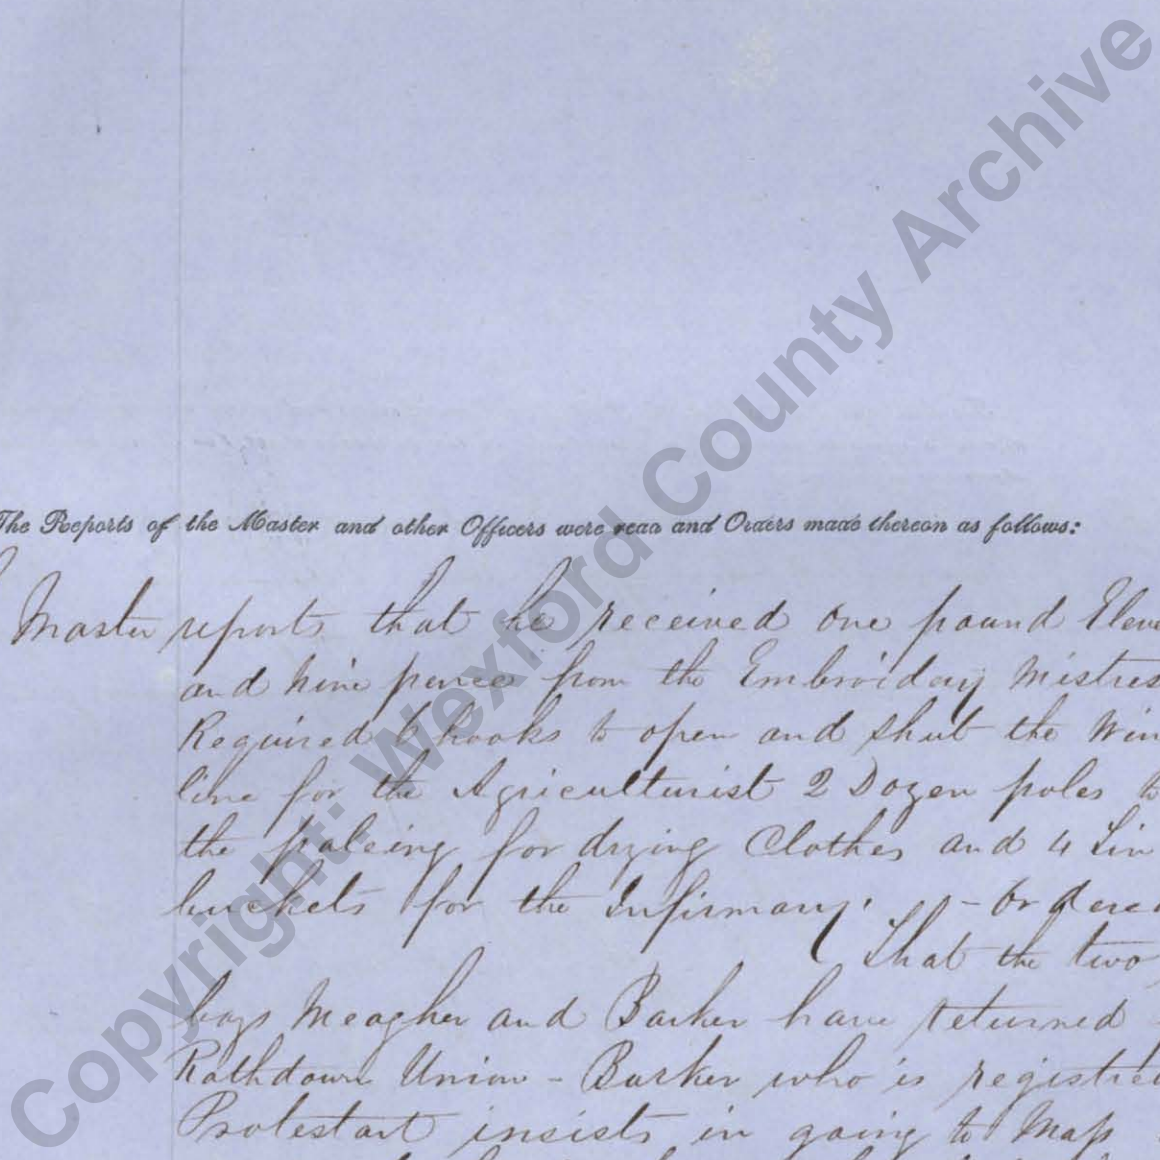 Copyright: Wexford County Archive
The Reports of the Master and other Officers were read and Orders made thereon as follows:
Master reports that he received one pound Eleve
and nine pence from the Embroidary Mistres
Required 6 hooks to open and shut the Win
line for the Agriculturist 2 Dozen poles
the paleing for drying Clothes and 4
buckets for the Infirmary. - Ordered
That the two
boys Meagher and Barker have returned
Rathdown Union - Barker who is registe
Protestant insists in going to Mass